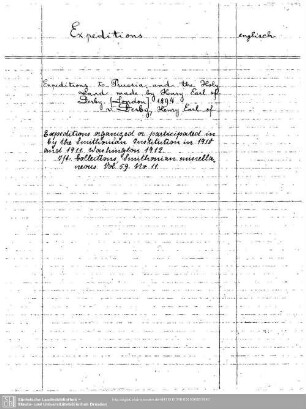 Expeditions
englisch
Expeditions to Prussia and the Holy
Land made by Henry Earl of
Derby. [London] 1894.
s. Derby, Henry Earl of
Expeditions organized or participated in
by the Smithsonian Institution in 1910
and 1911. Washington 1912.
Collections, Smithsonian miscella-
neous. Vol. 59. No. 11.
Sächsische Landesbibliothek -
Staats- und Universitätsbibliothek Dresden